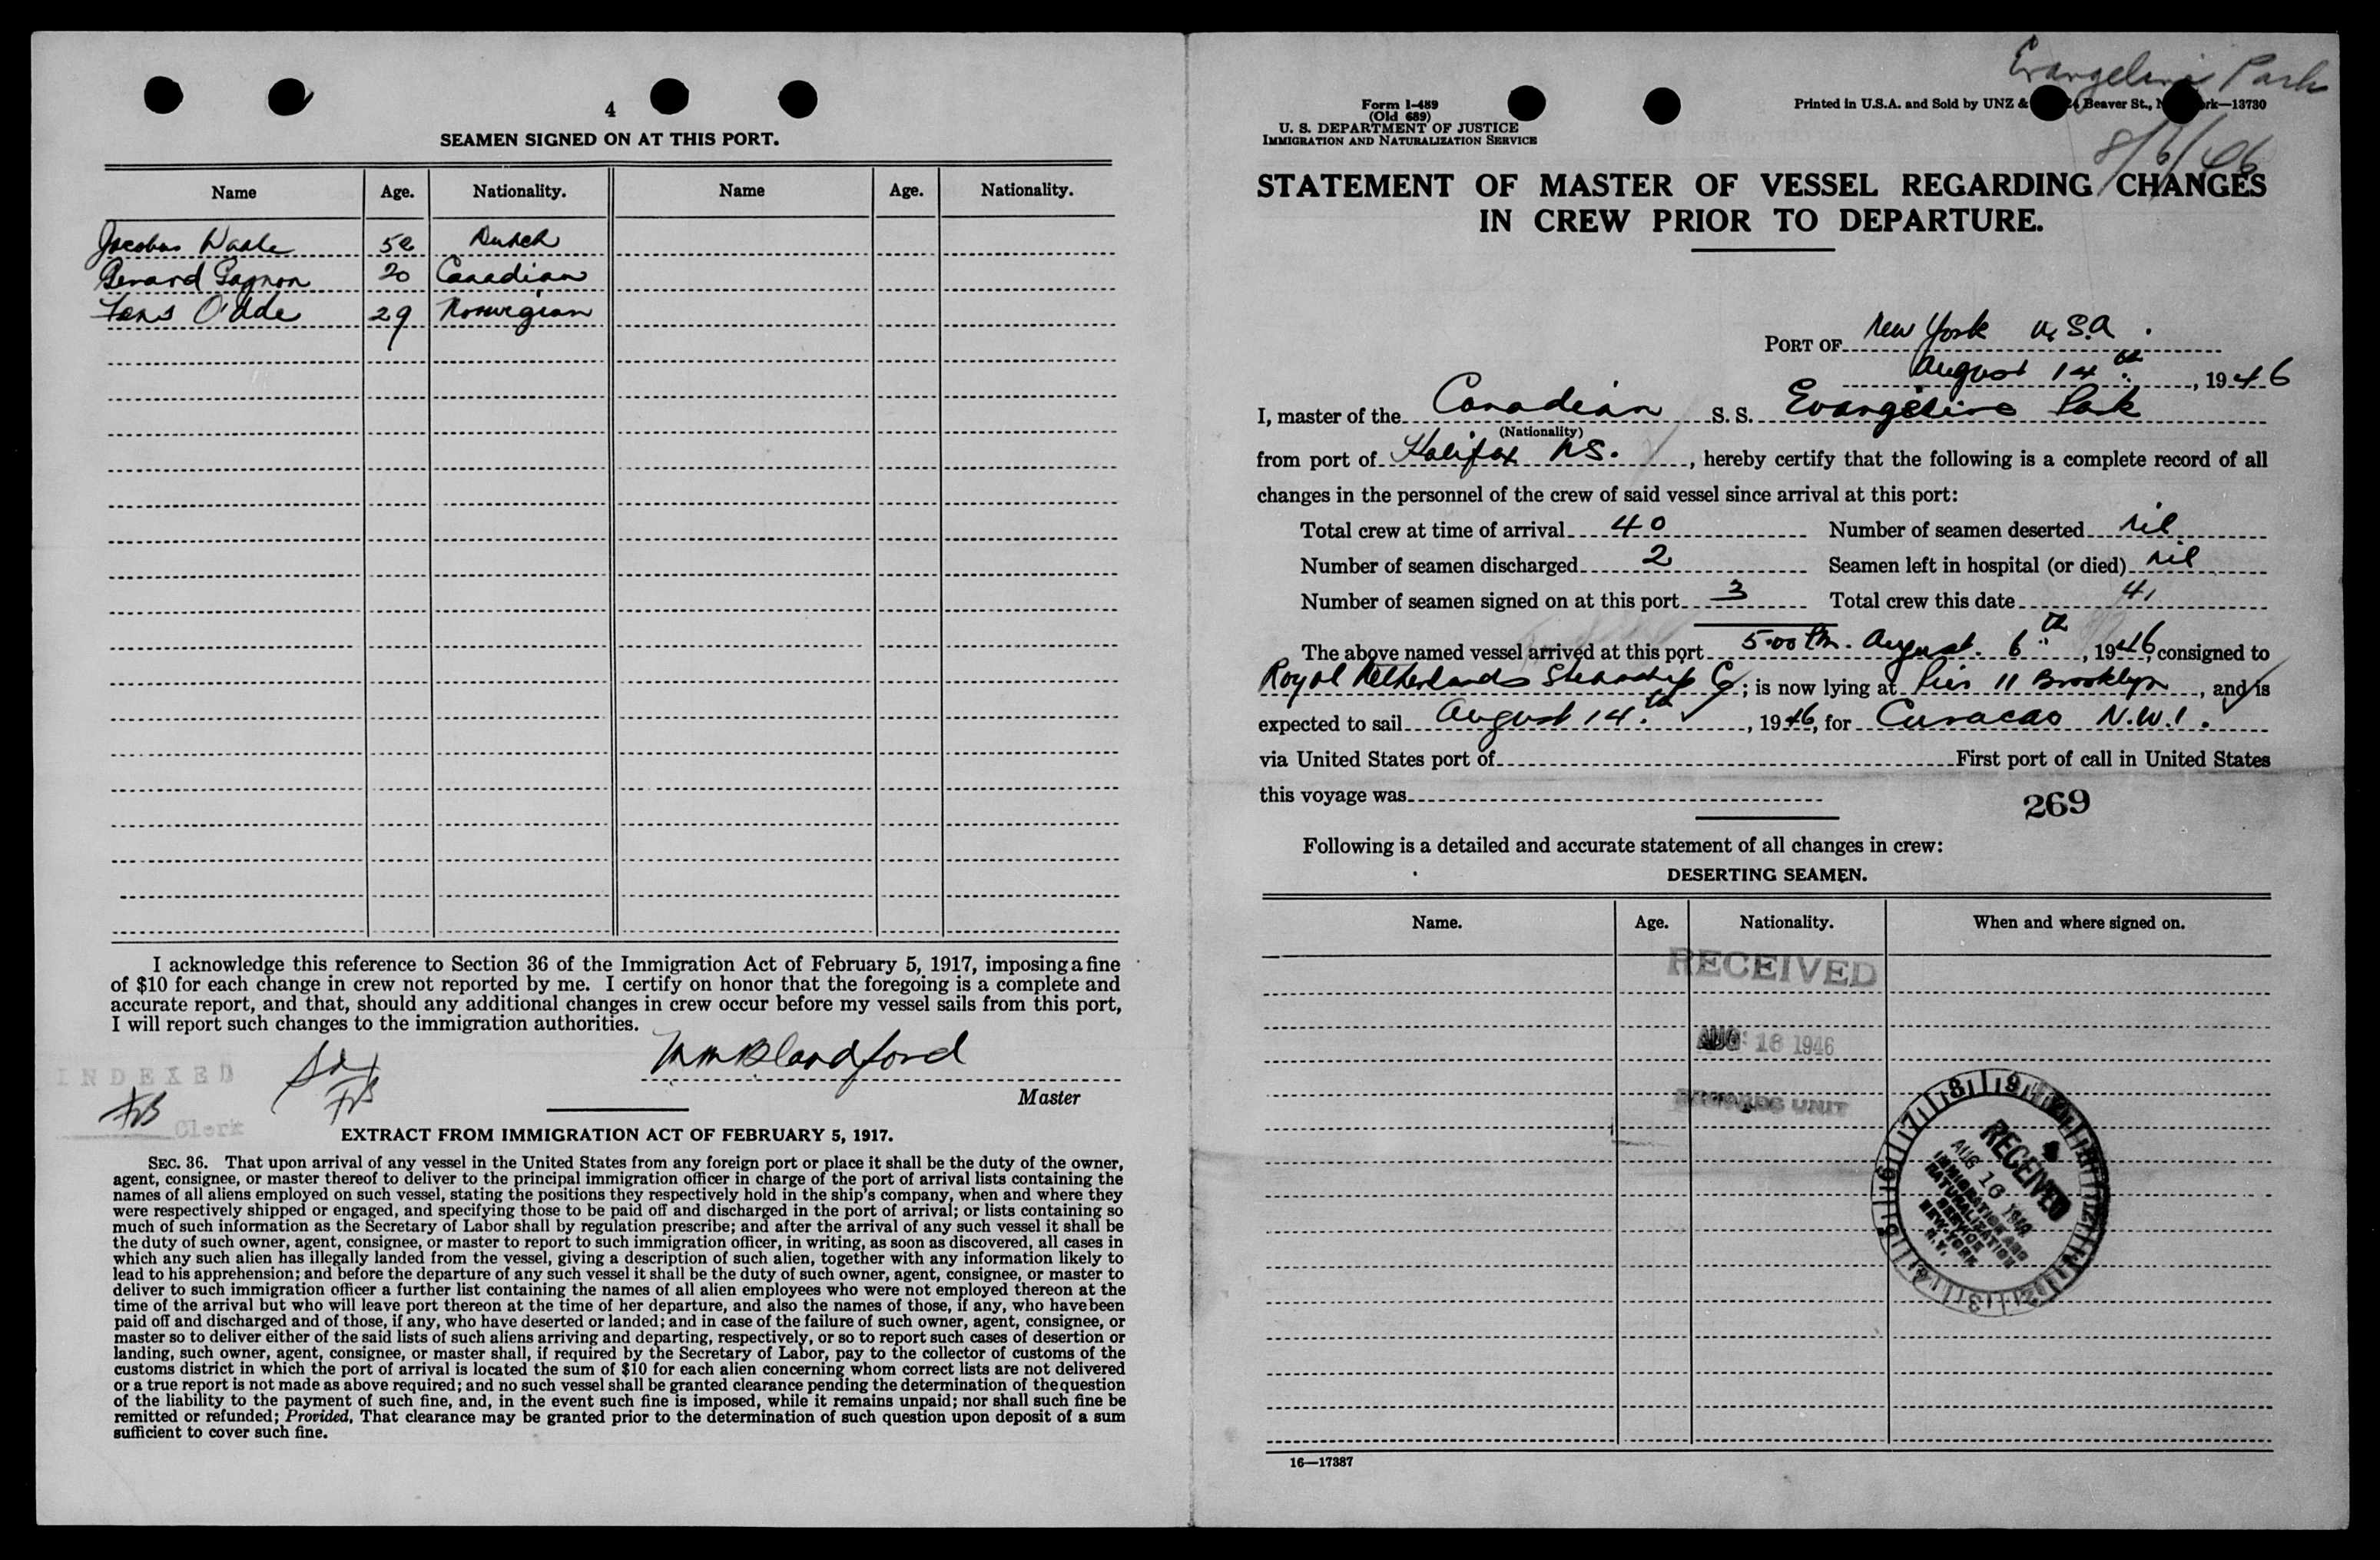 4
SEAMEN SIGNED ON AT THIS PORT.
Name Age. Nationality. Name Age. Nationality.
Jacobus 52 Dutch
Gerard Gagnon 20 Canadian
O'dde 29 Norwegian
I acknowledge this reference to Section 36 of the Immigration Act of February 5, 1917, imposing a fine
of $10 for each change in crew not reported by me. I certify on honor that the foregoing is a complete and
accurate report, and that, should any additional changes in crew occur before my vessel sails from this port,
I will report such changes to the immigration authorities.
Blandford
Master
INDEXED
Clerk
EXTRACT FROM IMMIGRATION ACT OF FEBRUARY 5, 1917.
SEC. 36. That upon arrival of any vessel in the United States from any foreign port or place it shall be the duty of the owner,
agent, consignee, or master thereof to deliver to the principal immigration officer in charge of the port of arrival lists containing the
names of all aliens employed on such vessel, stating the positions they respectively hold in the ship's company, when and where they
were respectively shipped or engaged, and specifying those to be paid off and discharged in the port of arrival; or lists containing so
much of such information as the Secretary of Labor shall by regulation prescribe; and after the arrival of any such vessel it shall be
the duty of such owner, agent, consignee, or master to report to such immigration officer, in writing, as soon as discovered, all cases in
which any such alien has illegally landed from the vessel, giving a description of such alien, together with any information likely to
lead to his apprehension; and before the departure of any such vessel it shall be the duty of such owner, agent, consignee, or master to
deliver to such immigration officer a further list containing the names of all alien employees who were not employed thereon at the
time of the arrival but who will leave port thereon at the time of her departure, and also the names of those, if any, who have been
paid off and discharged and of those, if any, who have deserted or landed; and in case of the failure of such owner, agent, consignee, or
master so to deliver either of the said lists of such aliens arriving and departing, respectively, or so to report such cases of desertion or
landing, such owner, agent, consignee, or master shall, if required by the Secretary of Labor, pay to the collector of customs of the
customs district in which the port of arrival is located the sum of $10 for each alien concerning whom correct lists are not delivered
or a true report is not made as above required; and no such vessel shall be granted clearance pending the determination of the question
of the liability to the payment of such fine, and, in the event such fine is imposed, while it remains unpaid; nor shall such fine be
remitted or refunded; Provided, That clearance may be granted prior to the determination of such question upon deposit of a sum
sufficient to cover such fine.
Evangeline Park
8/6/46
Form I-489
(Old 689)
U. S. DEPARTMENT OF JUSTICE
IMMIGRATION AND NATURALIZATION SERVICE
Printed in U.S.A. and Sold by UNZ & Beaver St., 13730
STATEMENT OF MASTER OF VESSEL REGARDING CHANGES
IN CREW PRIOR TO DEPARTURE.
PORT OF New York U.S.A.
August 14th, 1946
I, master of the Canadian S. S. Evangeline Park
(Nationality)
from port of Halifax N.S., hereby certify that the following is a complete record of all
changes in the personnel of the crew of said vessel since arrival at this port:
Total crew at time of arrival 40 Number of seamen deserted nil
Number of seamen discharged 2 Seamen left in hospital (or died) nil
Number of seamen signed on at this port 3 Total crew this date 41
The above named vessel arrived at this port 5.00 Pm. August. 6th, 1946, consigned to
Royal Netherlands Steamship Co; is now lying at Pier 11 Brooklyn, and is
expected to sail August 14.th, 1946, for Curacao N.W.I.
via United States port of First port of call in United States
this voyage was
269
Following is a detailed and accurate statement of all changes in crew:
DESERTING SEAMEN.
Name. Age. Nationality. When and where signed on.
RECEIVED
AUG 16 1946
RECORDS UNIT
RECEIVED
AUG 16 1946
IMMIGRATION AND
NATURALIZATION
SERVICE
NEW YORK
N.Y.
16—17387